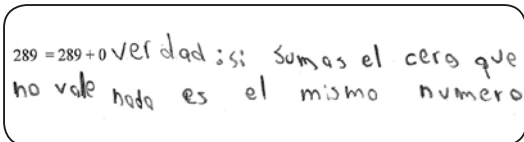 289 = 289 + 0 verdad ; si sumas el cero que
no vale nada es el mismo numero